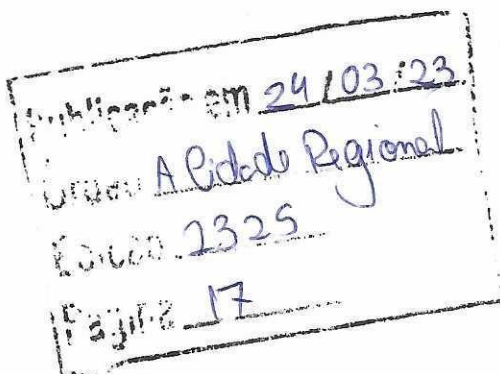 Publicação em 24/03/23
Órgão A Cidade Regional
Edição 2325
Página 17